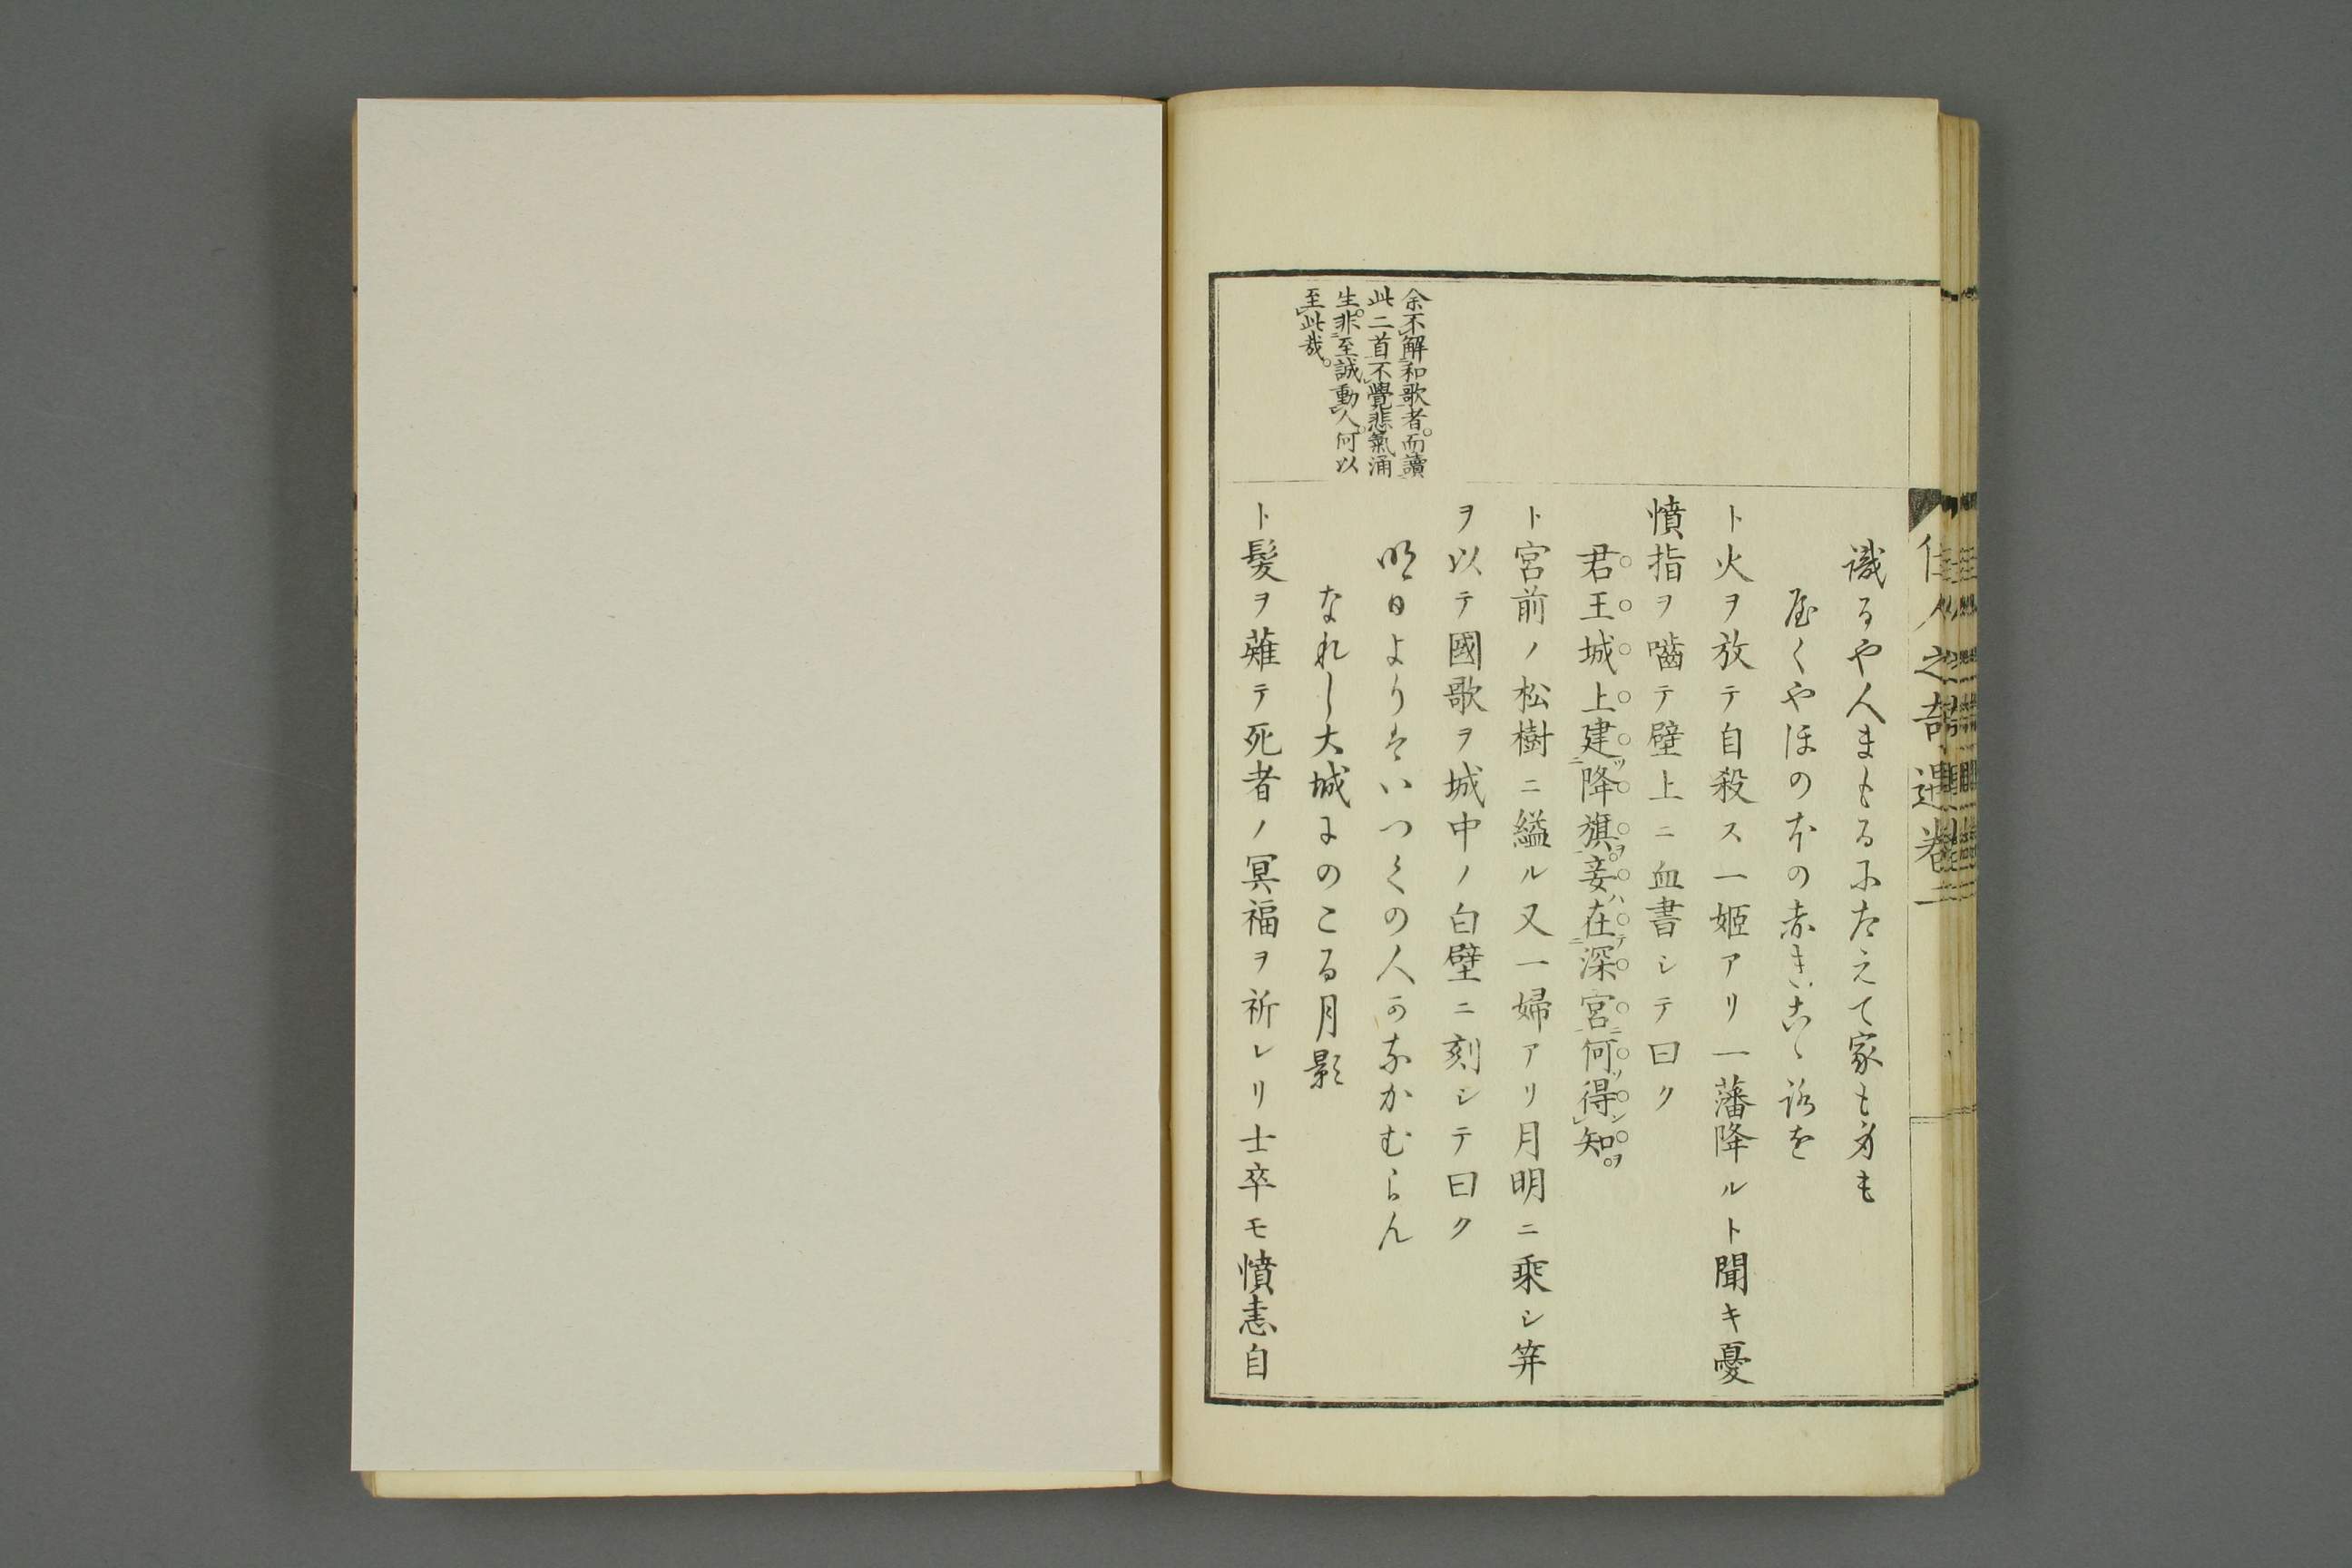 佳人之奇遇卷二
識るや人まもるに堪えて家も身も
やくやほのほの赤きこゝろを
ト火ヲ放テ自殺ス一姬アリ一藩降ルト聞キ憂
憤指ヲ嚙テ壁上ニ血書シテ曰ク
君王城上建降旗妾在深宮何得知
ト宮前ノ松樹ニ縊ル又一婦アリ月明ニ乘シ笄
ヲ以テ國歌ヲ城中ノ白壁ニ刻シテ曰ク
明日よりはいつくの人かなかむらん
なれし大城にのこる月影
ト髮ヲ薙テ死者ノ冥福ヲ祈レリ士卒モ憤恚自
余不解和歌者。而讀
此二首不覺悲氣涌
生。非至誠動人。何以
至此哉。